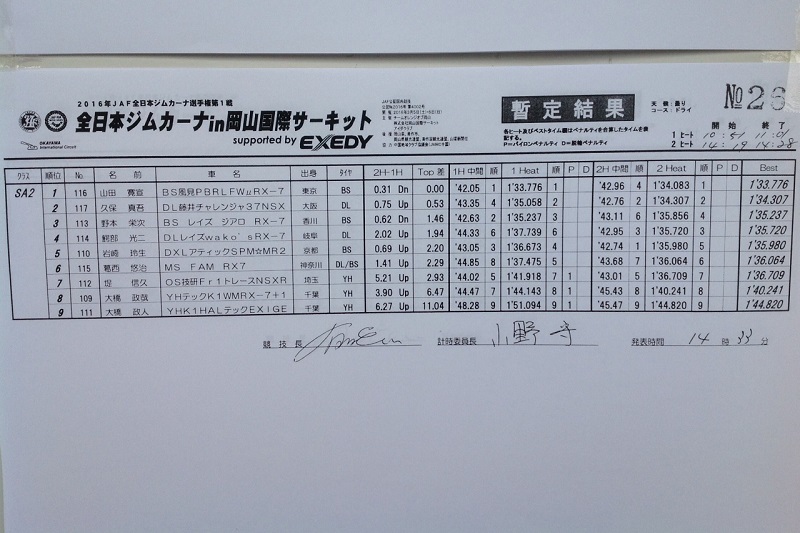 2016年JAF全日本ジムカーナ選手権第1戦
全日本ジムカーナin岡山国際サーキット
supported by EXEDY
OKAYAMA
International Circuit
暫定結果
各ヒート及びベストタイム欄はペナルティを合算したタイムを表記する。
P=パイロンペナルティ D=脱輪ペナルティ
№ 26
天候：曇り
コース：ドライ
開始 終了
1ヒート 10:51 11:01
2ヒート 14:19 14:28
クラス 順位 № 名前 車名 出身 タイヤ 2H-1H Top差 1H中間 順 1 Heat 順 P D 2H中間 順 2 Heat 順 P D Best
SA2 1 116 山田 寛宣 BS風見PBRLFWμRX-7 東京 BS 0.31 Dn 0.00 '42.05 1 1'33.776 1 '42.96 4 1'34.083 1 1'33.776
2 117 久保 真吾 DL藤井チャレンジャ37NSX 大阪 DL 0.75 Up 0.53 '43.35 4 1'35.058 2 '42.76 2 1'34.307 2 1'34.307
3 113 野本 栄次 BS レイズ ジアロ RX-7 香川 BS 0.62 Dn 1.46 '42.63 2 1'35.237 3 '43.11 6 1'35.856 4 1'35.237
4 114 鰐部 光二 DLレイズwako'sRX-7 岐阜 DL 2.02 Up 1.94 '44.33 6 1'37.739 6 '42.95 3 1'35.720 3 1'35.720
5 110 岩崎 玲生 DXLアティックSPM☆MR2 京都 BS 0.69 Up 2.20 '43.05 3 1'36.673 4 '42.74 1 1'35.980 5 1'35.980
6 115 葛西 悠治 MS FAM RX7 神奈川 DL/BS 1.41 Up 2.29 '44.85 8 1'37.475 5 '43.68 7 1'36.064 6 1'36.064
7 112 堤 信久 OS技研Fr1トレースNSXR 埼玉 YH 5.21 Up 2.93 '44.02 5 1'41.918 7 1 '43.01 5 1'36.709 7 1'36.709
8 109 大橋 政哉 YHテックK1WMRX-7+1 千葉 YH 3.90 Up 6.47 '44.47 7 1'44.143 8 1 '45.43 8 1'40.241 8 1'40.241
9 111 大橋 政人 YHK1HALテックEXIGE 千葉 YH 6.27 Up 11.04 '48.28 9 1'51.094 9 1 '45.47 9 1'44.820 9 1'44.820
競技長 計時委員長 小野 守 発表時間 14 時 33 分